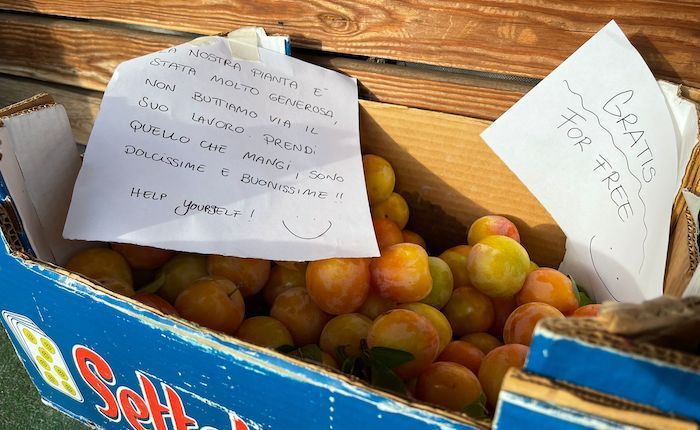 LA NOSTRA PIANTA E'
STATA MOLTO GENEROSA,
NON BUTTIAMO VIA IL
SUO LAVORO. PRENDI
QUELLO CHE MANGI, SONO
DOLCISSIME E BUONISSIME!!
HELP YOURSELF!
GRATIS
FOR FREE